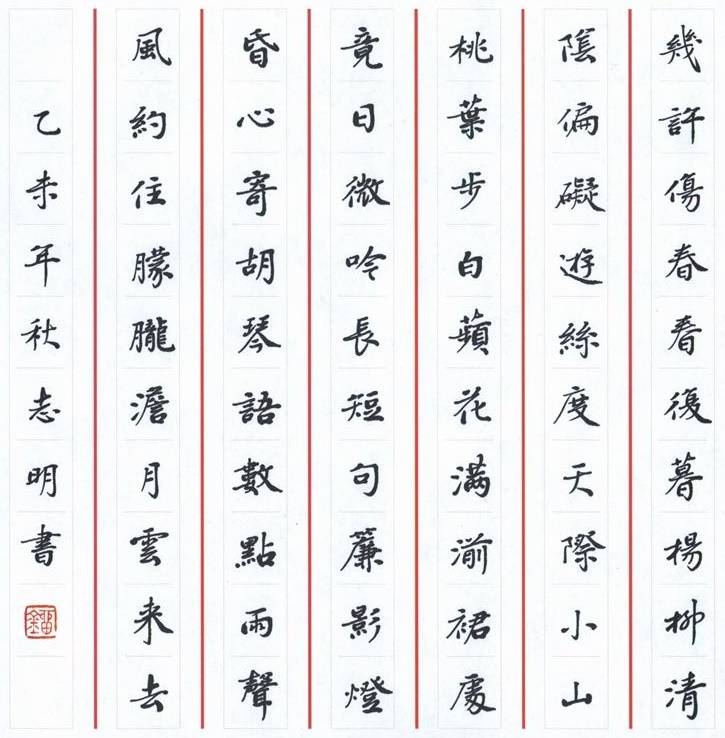 幾許傷春春復暮楊柳清
陰偏礙遊絲度天際小山
桃葉步白蘋花滿湔裙處
竟日微吟長短句簾影燈
昏心寄胡琴語數點雨聲
風約住朦朧澹月雲来去
乙未年秋志明書